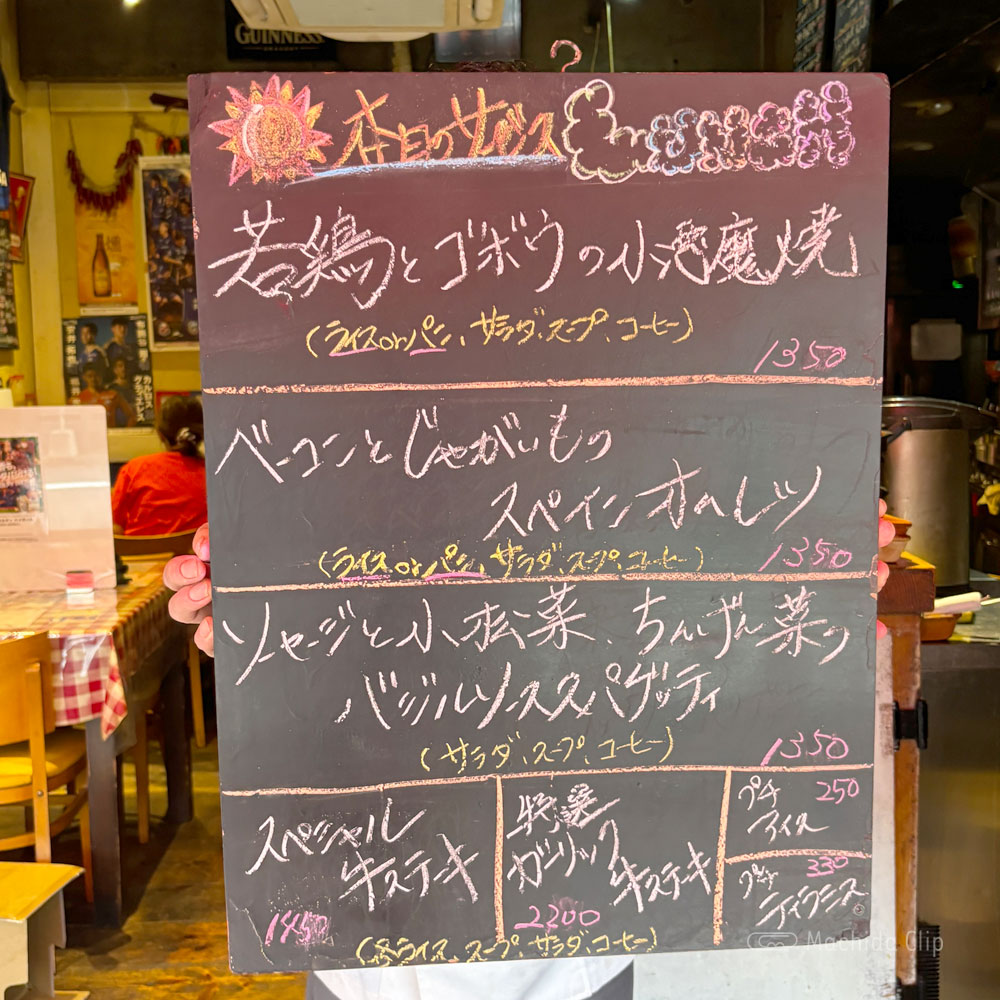 GUINNESS
DRAUGHT
本日のサービス
若鶏とゴボウの小悪魔焼
(ライスorパン、サラダ、スープ、コーヒー)
1350
ベーコンとじゃがいもの
スペインオムレツ
(ライスorパン、サラダ、スープ、コーヒー)
1350
ソーセージと小松菜、ちんげん菜の
バジルソーススパゲッティ
(サラダ、スープ、コーヒー)
1350
スペシャル
牛ステーキ
1450
特選
ガーリック
牛ステーキ
2200
プチ 250
アイス
プチ 330
ティラミス
ライス、スープ、サラダ、コーヒー)
Machida Clip